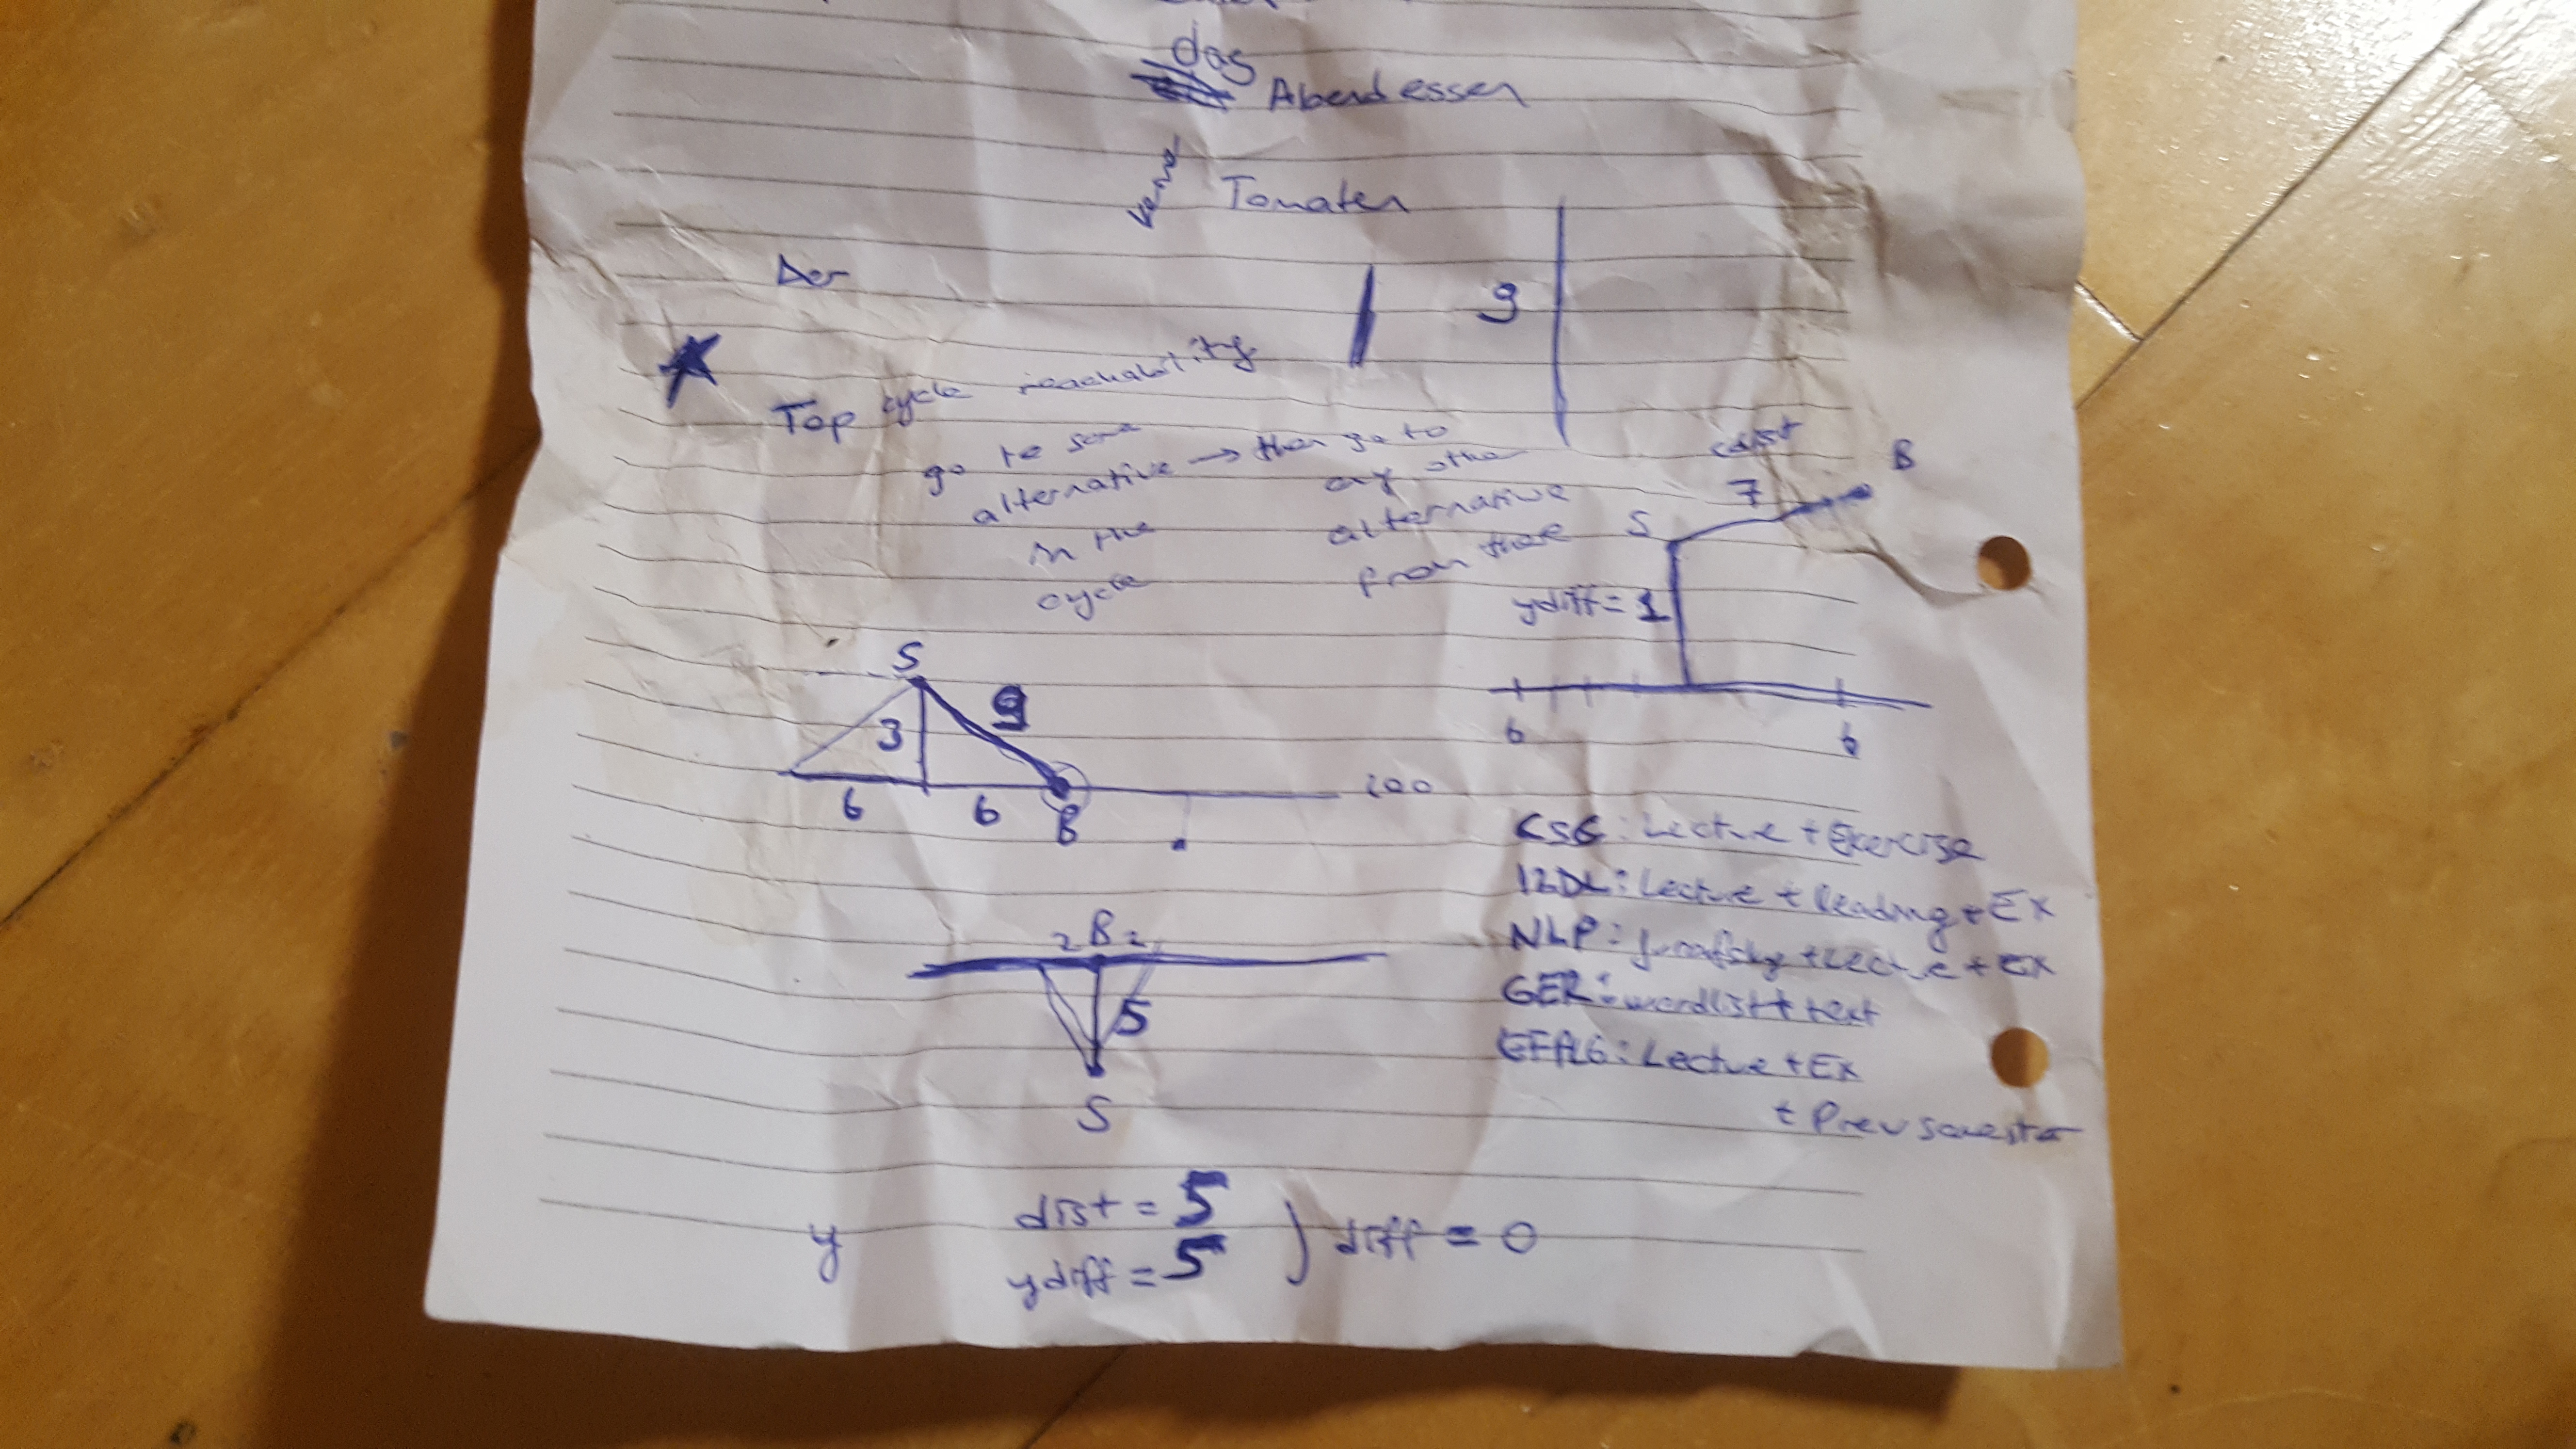 das Abendessen
Tomaten
Der
9
Top cycle reachability
go to some
alternative → then go to
any other
in the alternative
cycle from there
cdist
S 7 B
ydiff = 1
S
3 9
6 6 B 100
6 6
CSG: Lecture + Exercise
I2DL: Lecture + Reading + Ex
2 B 2
NLP: Lecture + Ex
5
GER: wordlist + text
S
Lecture + Ex
+ Prev semester
y dist = 5
ydiff = 5 } diff = 0